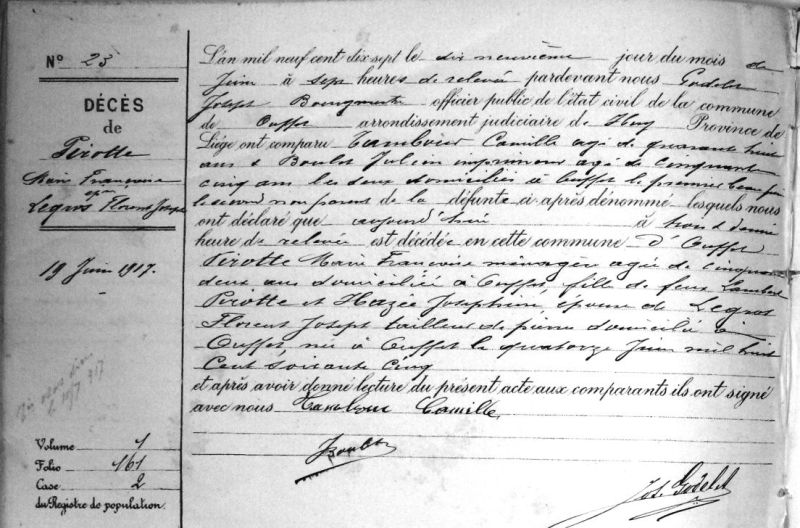 N° 23
DÉCÈS
de
Pirotte
Marie Françoise
ép.
Legros Florent Joseph
19 Juin 1917.
Volume 1
Folio 161
Case 2
du Registre de population.
L'an mil neuf cent dix sept le dix neuvième jour du mois de
Juin à sept heures de relevée pardevant nous Godelet
Joseph Bourgmestre officier public de l'état civil de la commune
de Ouffet arrondissement judiciaire de Huy Province de
Liége ont comparu Tambour Camille agé de quarante huit
ans & Boulet Julien imprimeur agé de cinquante
cinq ans les deux domiciliés à Ouffet le premier beau frère
le second non parent de la défunte ci après dénommé lesquels nous
ont déclaré que aujourd'hui à trois & demie
heure de relevée est décédée en cette commune d'Ouffet
Pirotte Marie Françoise ménagère agée de cinquante
deux ans domiciliée à Ouffet, fille de feux Lambert
Pirotte et Hazée Joséphine, épouse de Legros
Florent Joseph tailleur de pierre domicilié à
Ouffet, née à Ouffet le quatorze Juin mil huit
Cent soixante cinq
et après avoir donné lecture du présent acte aux comparants ils ont signé
avec nous Tambour Camille
J Boulet
Jos. Godelet